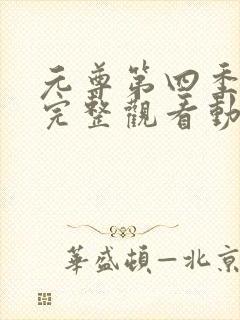 元尊第四季
完整觀看動
華盛頓—北京